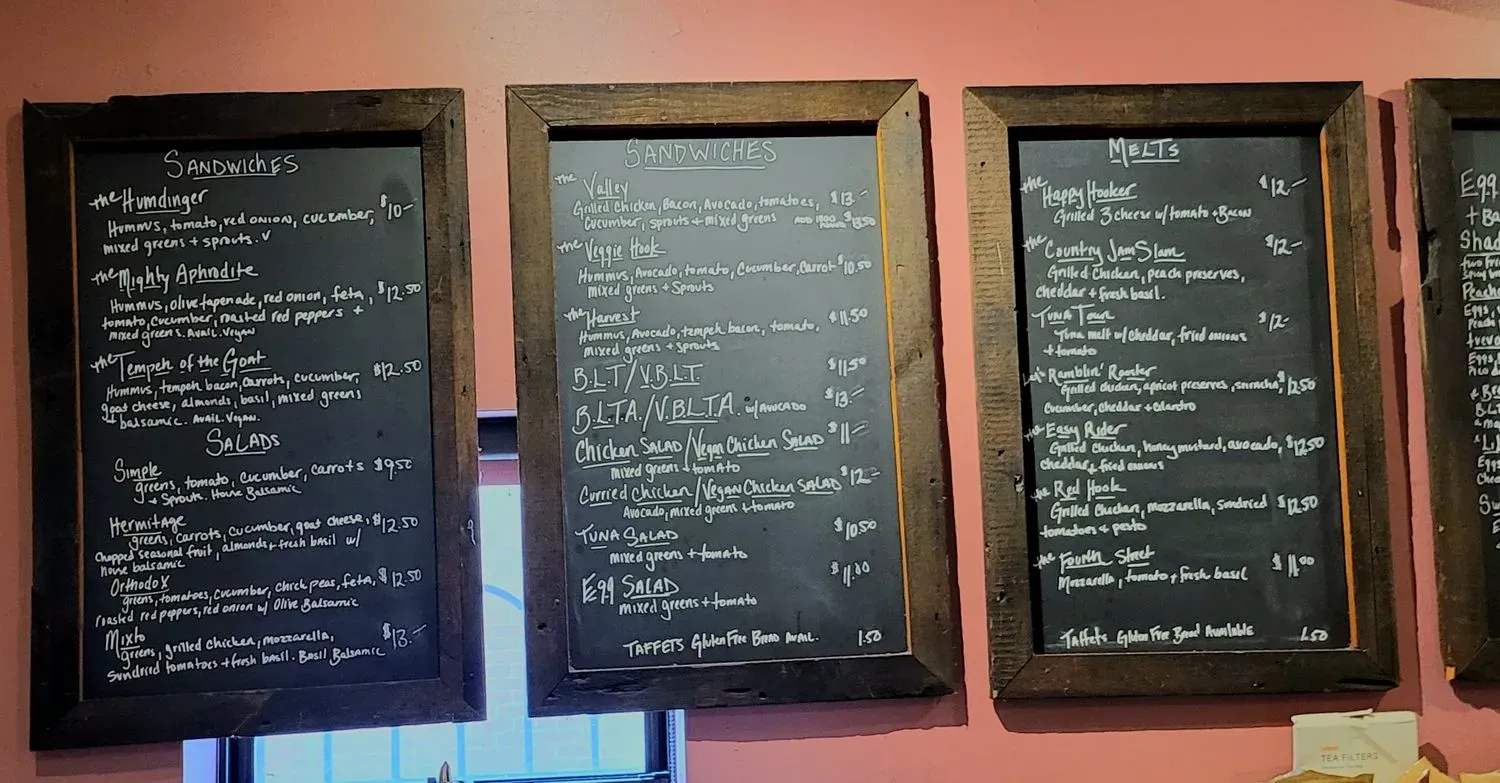 SANDWICHES
the Humdinger $10-
Hummus, tomato, red onion, cucumber,
mixed greens + sprouts. V
the Mighty Aphrodite
Hummus, olive tapenade, red onion, feta, $12.50
tomato, cucumber, roasted red peppers +
mixed greens. Avail. Vegan
the Tempeh of the Goat $12.50
Hummus, tempeh bacon, carrots, cucumber,
goat cheese, almonds, basil, mixed greens
+ balsamic. Avail. Vegan.
SALADS
Simple
greens, tomato, cucumber, carrots $9.50
+ Sprouts. House Balsamic
Hermitage
greens, carrots, cucumber, goat cheese, $12.50
chopped seasonal fruit, almonds + fresh basil w/
house balsamic
Orthodox
greens, tomatoes, cucumber, chick peas, feta, $12.50
roasted red peppers, red onion w/ Olive Balsamic
Mixto
greens, grilled chicken, mozzarella, $13.-
Sundried tomatoes + fresh basil. Basil Balsamic
SANDWICHES
the Valley
Grilled Chicken, Bacon, Avocado, tomatoes, $13.-
cucumber, sprouts + mixed greens
the Veggie Hook
Hummus, Avocado, tomato, Cucumber, Carrot $10.50
mixed greens + Sprouts
the Harvest
Hummus, Avocado, tempeh bacon, tomato, $11.50
mixed greens + sprouts
B.L.T/V.B.L.T $11.50
B.L.T.A./V.B.L.T.A. w/ AVOCADO $13.-
Chicken SALAD/Vegan Chicken SALAD $11-
mixed greens + tomato
Curried Chicken/Vegan Chicken SALAD $12-
Avocado, mixed greens + tomato
TUNA SALAD $10.50
mixed greens + tomato
Egg SALAD $11.00
mixed greens + tomato
TAFFETS Gluten Free Bread Avail. 1.50
MELTS
the Happy Hooker $12-
Grilled 3 cheese w/ tomato + Bacon
the Country Jam Slam $12-
Grilled Chicken, peach preserves,
cheddar + fresh basil.
Tuna Town $12-
Tuna melt w/ cheddar, fried onions
+ tomato
Ramblin' Rooster
Grilled chicken, apricot preserves, sriracha, $12.50
cucumber, cheddar + cilantro
the Easy Rider
Grilled Chicken, honey mustard, avocado, $12.50
cheddar + fried onions
the Red Hook
Grilled Chicken, mozzarella, sundried $12.50
tomatoes + pesto
the Fourth Street $11.00
Mozzarella, tomato + fresh basil
Taffets Gluten Free Bread Available 1.50
Egg
+ Ba
Shad
Eggs
Peach
TEA FILTERS